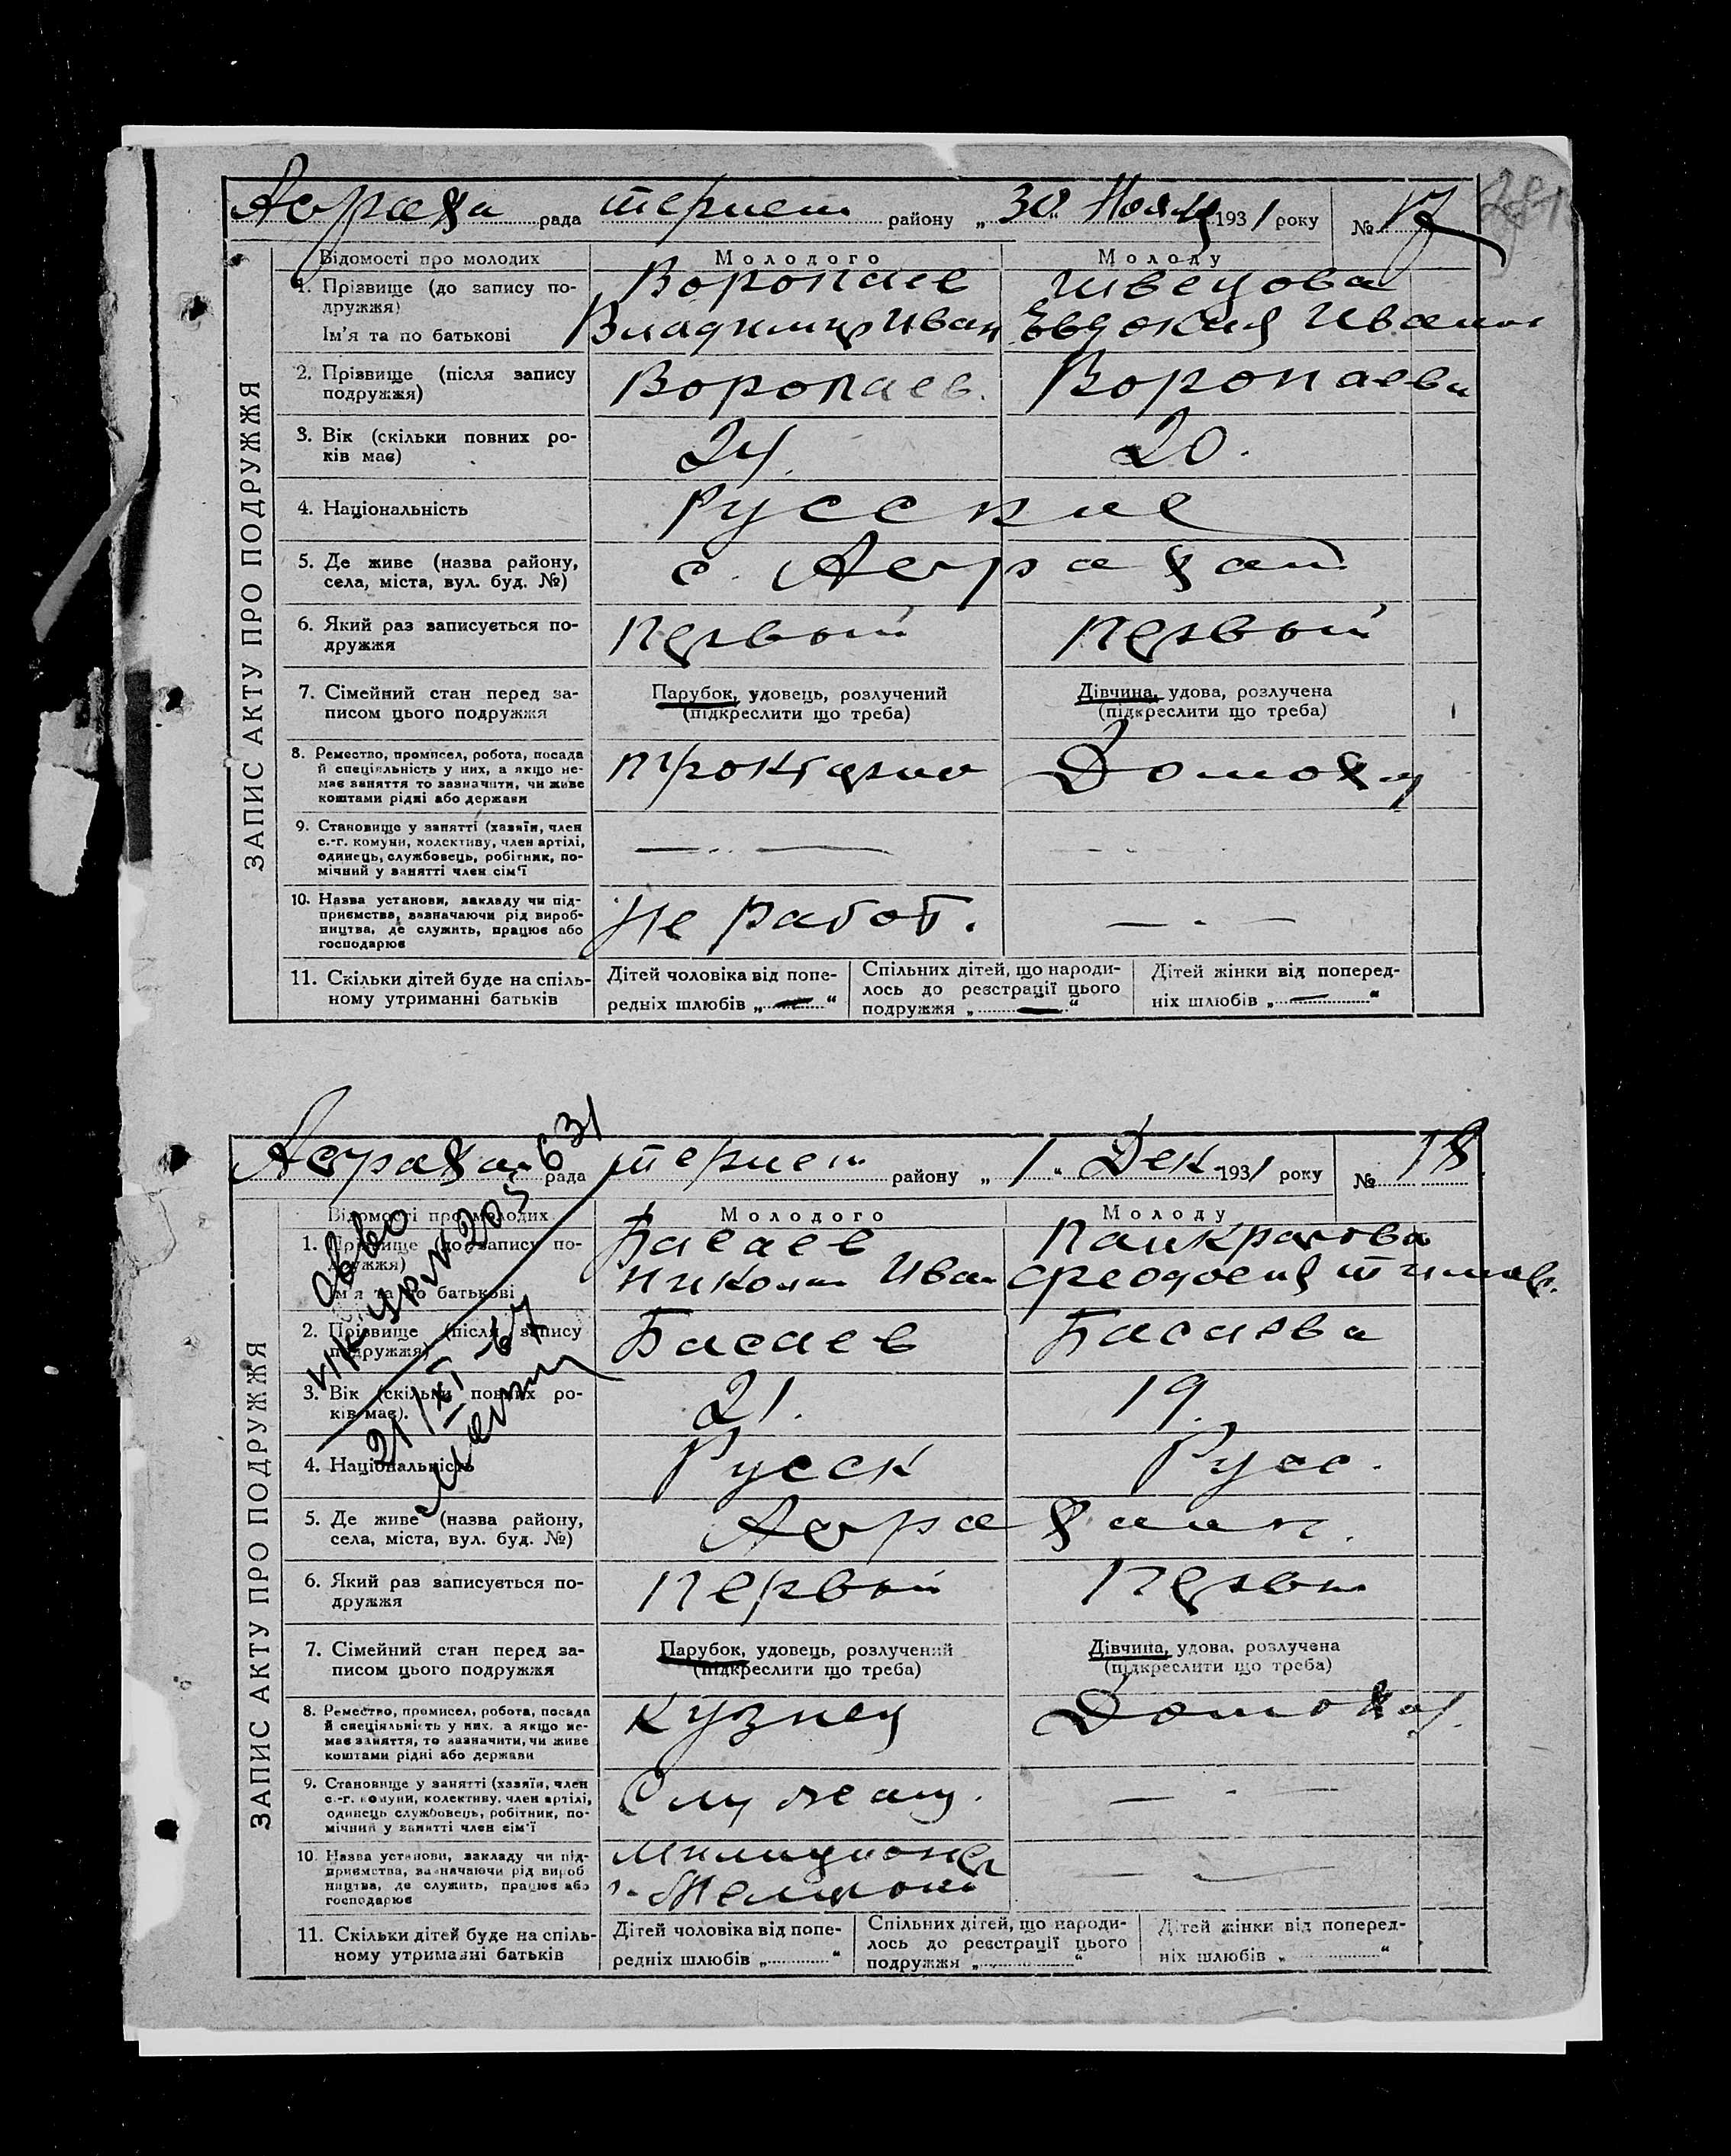 Астраха рада терпет району „30“ Ноя 1931 року № 17
ЗАПИС АКТУ ПРО ПОДРУЖЖЯ
Відомості про молодих Молодого Молоду
1. Прізвище (до запису по- Воропаев Швецова
дружжя)
Ім'я та по батькові Владимир Иван Евдокия Иван
2. Прізвище (після запису Воропаев. Воропаева
подружжя)
3. Вік (скільки повних ро- 24. 20.
ків має)
4. Національність Русские
5. Де живе (назва району, с. Астрахан
села, міста, вул. буд. №)
6. Який раз записується по- первый первый
дружжя
7. Сімейний стан перед за- Парубок, удовець, розлучений Дівчина, удова, розлучена
писом цього подружжя (підкреслити що треба) (підкреслити що треба)
8. Ремество, промисел, робота, посада Домохоз
й спеціяльність у них, а якщо не-
має заняття то зазначити, чи живе
коштами рідні або держави
9. Становище у занятті (хазяїн, член
с.-г. комуни, колективу, член артілі,
одинець, службовець, робітник, по-
мічний у занятті член сім'ї
10. Назва установи, закладу чи під- Не работ.
приємства, зазначаючи рід вироб-
ництва, де служить, працює або
господарює
11. Скільки дітей буде на спіль- Дітей чоловіка від попе- Спільних дітей, що народи- Дітей жінки від поперед-
ному утриманні батьків редніх шлюбів „—“ лось до реєстрації цього ніх шлюбів „—“
подружжя „—“
Астрахан рада терпет району „1“ Дек 1931 року № 18.
ЗАПИС АКТУ ПРО ПОДРУЖЖЯ
Відомості про молодих Молодого Молоду
1. Прізвище (до запису по- Басаев Панкратова
дружжя)
Ім'я та по батькові Николай Иван Феодосия Тимоф.
2. Прізвище (після запису Басаев Басаева
подружжя)
3. Вік (скільки повних ро- 21. 19.
ків має).
4. Національність Русск Русс.
5. Де живе (назва району, Астрахан.
села, міста, вул. буд. №)
6. Який раз записується по- первый первы
дружжя
7. Сімейний стан перед за- Парубок, удовець, розлучений Дівчина, удова, розлучена
писом цього подружжя (підкреслити що треба) (підкреслити що треба)
8. Ремество, промисел, робота, посада Кузнец Домохоз.
й спеціяльність у них, а якщо не-
має заняття, то зазначити, чи живе
коштами рідні або держави
9. Становище у занятті (хазяїн, член Служащ.
с.-г. комуни, колективу, член артілі,
одинець службовець, робітник, по-
мічний у занятті член сім'ї
10. Назва установи, закладу чи під- Милиционер
приємства, зазначаючи рід вироб г. Мелитопол
ництва, де служить, працює або
господарює
11. Скільки дітей буде на спіль- Дітей чоловіка від попе- Спільних дітей, що народи- Дітей жінки від поперед-
ному утриманні батьків редніх шлюбів „“ лось до реєстрації цього ніх шлюбів „“
подружжя „“
21/XI-67